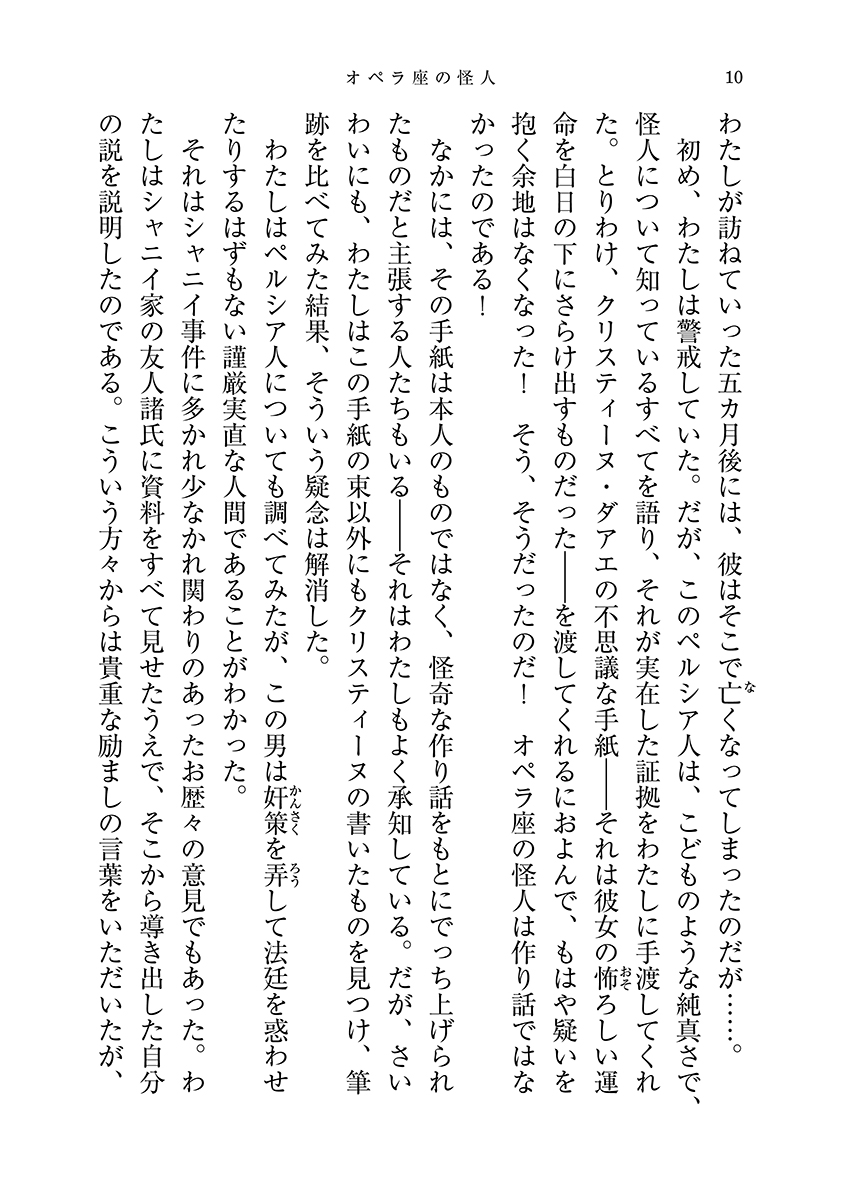 オペラ座の怪人
10
わたしが訪ねていった五カ月後には、彼はそこで亡くなってしまったのだが……。
初め、わたしは警戒していた。だが、このペルシア人は、こどものような純真さで、
怪人について知っているすべてを語り、それが実在した証拠をわたしに手渡してくれ
た。とりわけ、クリスティーヌ・ダアエの不思議な手紙――それは彼女の怖ろしい運
命を白日の下にさらけ出すものだった――を渡してくれるにおよんで、もはや疑いを
抱く余地はなくなった！　そう、そうだったのだ！　オペラ座の怪人は作り話ではな
かったのである！
なかには、その手紙は本人のものではなく、怪奇な作り話をもとにでっち上げられ
たものだと主張する人たちもいる――それはわたしもよく承知している。だが、さい
わいにも、わたしはこの手紙の束以外にもクリスティーヌの書いたものを見つけ、筆
跡を比べてみた結果、そういう疑念は解消した。
わたしはペルシア人についても調べてみたが、この男は奸策を弄して法廷を惑わせ
たりするはずもない謹厳実直な人間であることがわかった。
それはシャニイ事件に多かれ少なかれ関わりのあったお歴々の意見でもあった。わ
たしはシャニイ家の友人諸氏に資料をすべて見せたうえで、そこから導き出した自分
の説を説明したのである。こういう方々からは貴重な励ましの言葉をいただいたが、